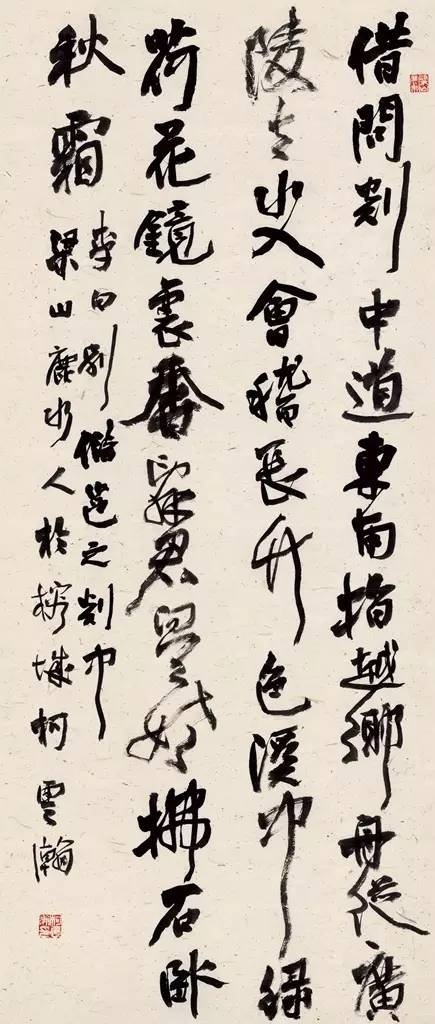 借問剡中道東南指越鄉舟從廣
陵去水入會稽長竹色溪中綠
荷花鏡裏香辭君天姥拂石臥
秋霜
李白別儲邕之剡中
梁山鹿水人於榕城柯雲瀚